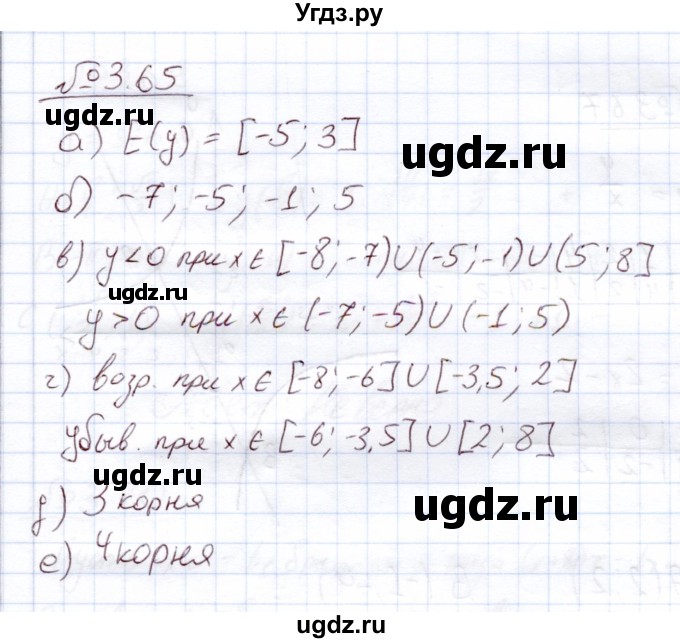 Угдз.ру
№3.65
ugdz.ru
а) E(y) = [-5; 3]
ugdz.ru
б) -7; -5; -1; 5
в) y<0 при x∈[-8;-7)∪(-5;-1)∪(5;8]
ugdz.ru
y>0 при x∈(-7;-5)∪(-1;5)
г) возр. при x∈[-8;-6]∪[-3,5; 2]
убыв. при x∈[-6;-3,5]∪[2; 8]
ugdz.ru
д) 3 корня
ugdz.ru
е) 4 корня
ugdz.ru
ugdz.ru